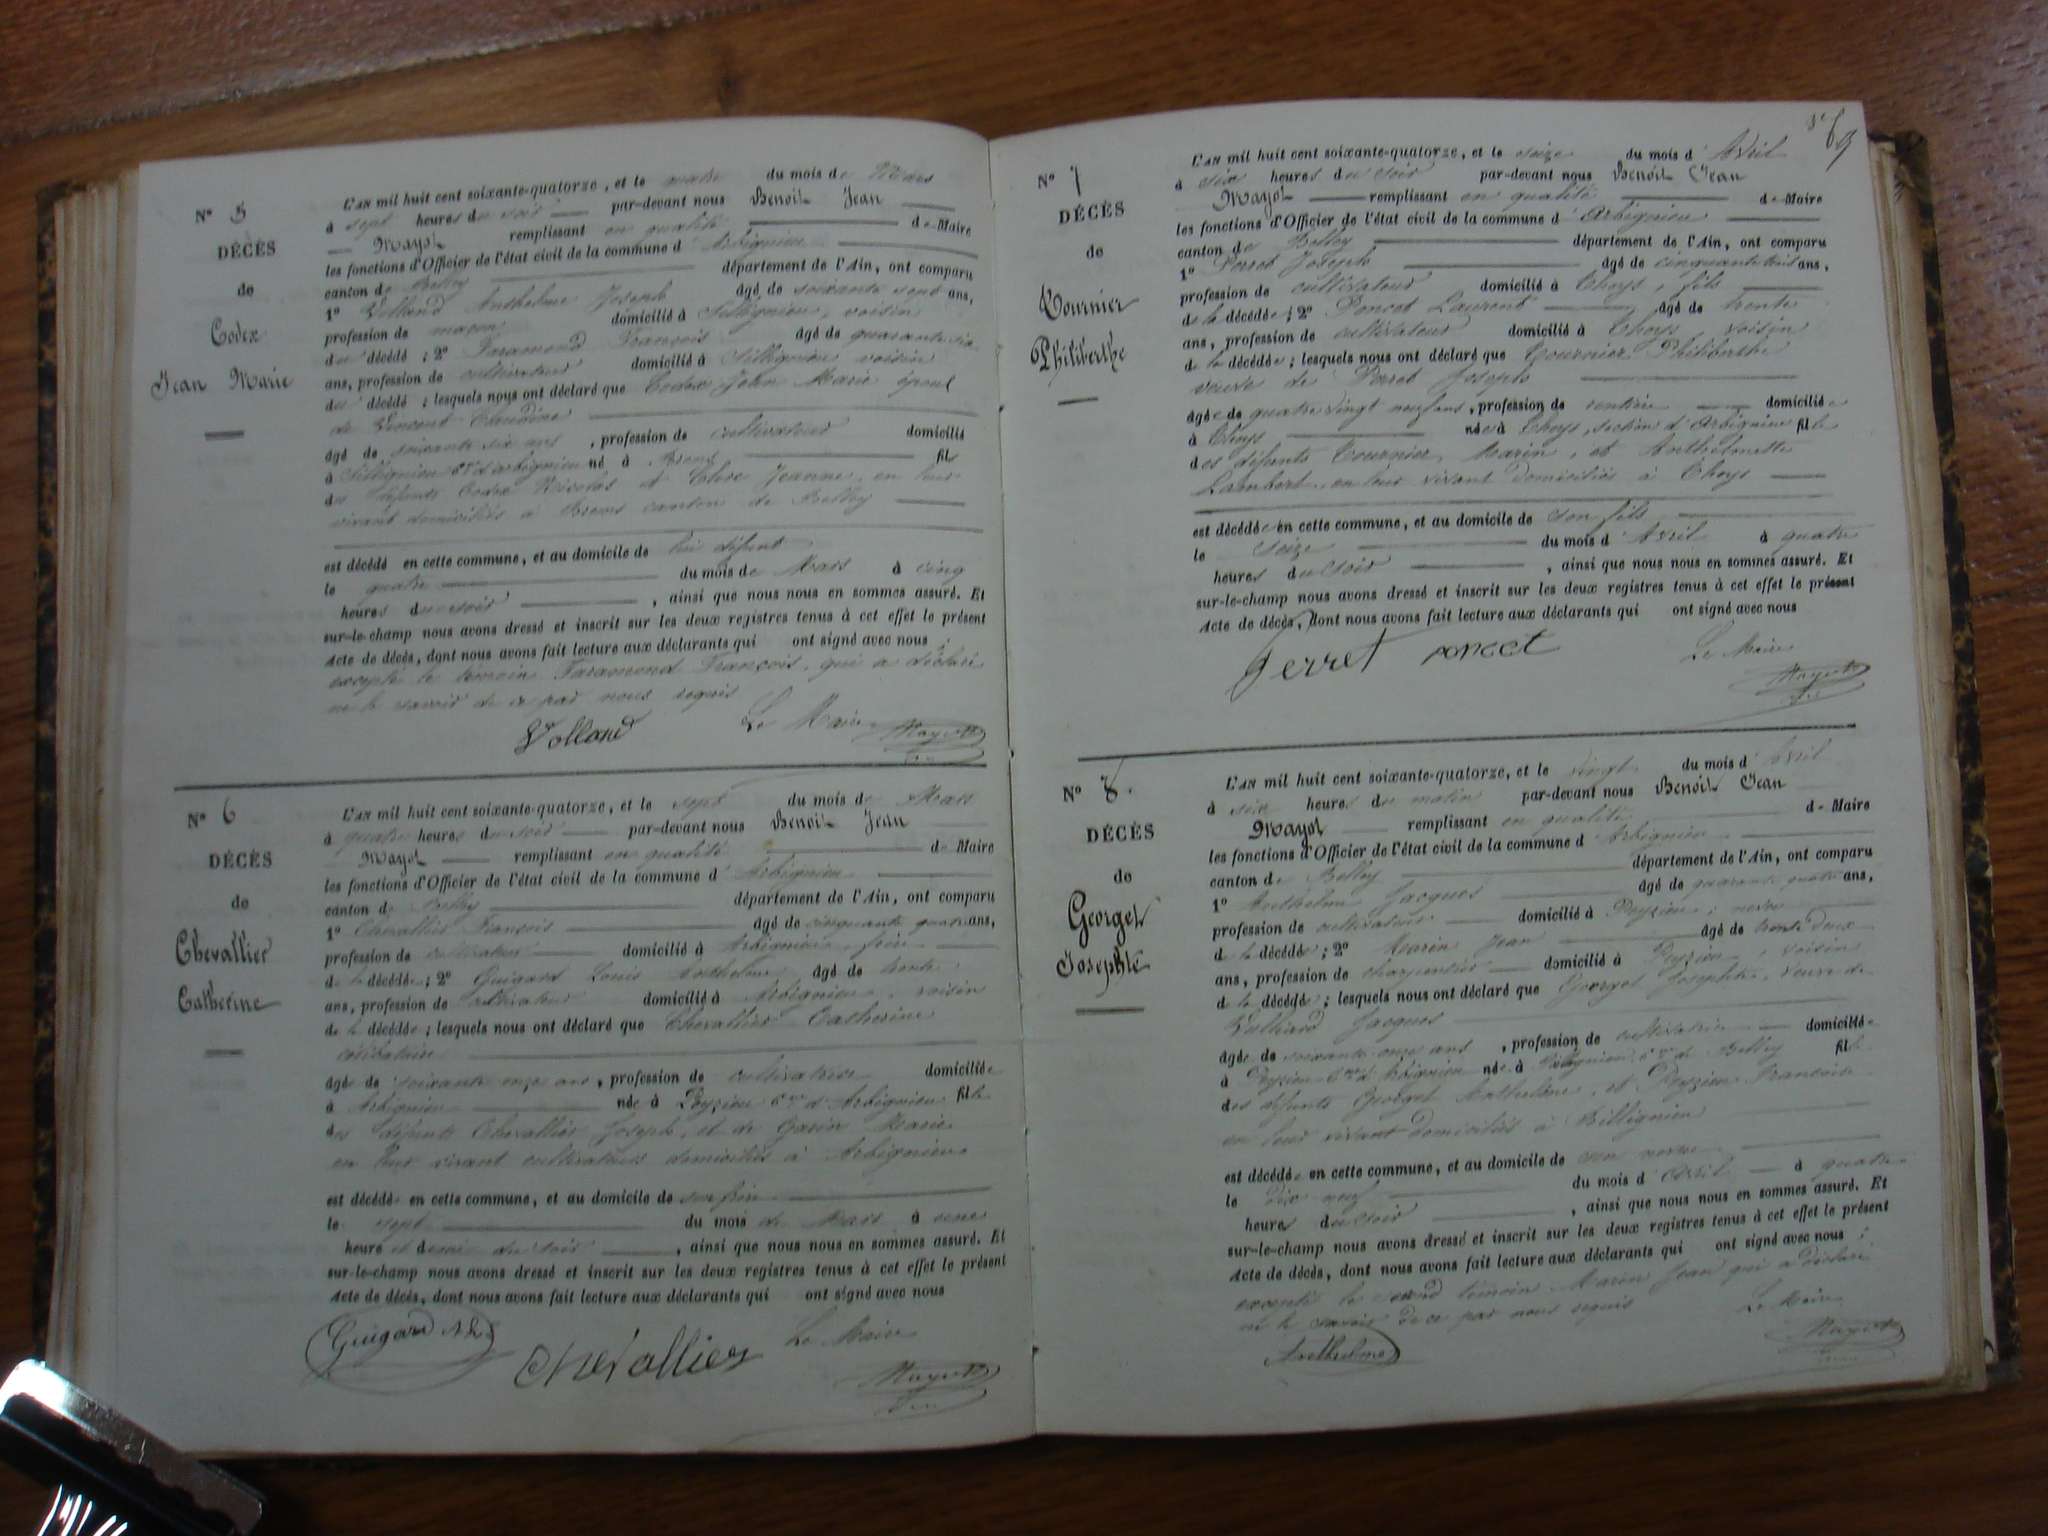 N° 5
DÉCÈS
de
Codex
Jean Marie
L'AN mil huit cent soixante-quatorze, et le quatre du mois de Mars
à sept heures du soir par-devant nous Benoit Jean
Mayot remplissant en qualité de Maire
les fonctions d'Officier de l'état civil de la commune d'Arbignieu
canton de Belley département de l'Ain, ont comparu
1° Volland Anthelme Joseph âgé de soixante sept ans,
profession de maçon domicilié à Sillignieu, voisin
du décédé ; 2° Faramond François âgé de quarante six
ans, profession de cultivateur domicilié à Sillignieu voisin
du décédé ; lesquels nous ont déclaré que Codex Jean Marie époux
de Vincent Claudine
âgé de soixante six ans, profession de cultivateur domicilié
à Sillignieu cne d'arbignieu né à Brens fils
des défunts Codex Nicolas et Jeanne en leur
vivant domiciliés à Brens canton de Belley
est décédé en cette commune, et au domicile de lui défunt
le quatre du mois de Mars à cinq
heures du soir, ainsi que nous nous en sommes assuré. Et
sur-le-champ nous avons dressé et inscrit sur les deux registres tenus à cet effet le présent
Acte de décès, dont nous avons fait lecture aux déclarants qui ont signé avec nous ;
excepté le témoin Faramond François, qui a déclaré
ne le savoir de ce par nous requis
Volland Le Maire Mayot
N° 6
DÉCÈS
de
Chevallier
Catherine
L'AN mil huit cent soixante-quatorze, et le sept du mois de Mars
à quatre heures du soir par-devant nous Benoit Jean
Mayot remplissant en qualité de Maire
les fonctions d'Officier de l'état civil de la commune d'Arbignieu
canton de Belley département de l'Ain, ont comparu
1° Chevallier François âgé de cinquante quatre ans,
profession de cultivateur domicilié à Arbignieu, frère
de la décédée ; 2° Guigard Louis Anthelme âgé de trente
ans, profession de cultivateur domicilié à Arbignieu, voisin
de la décédée ; lesquels nous ont déclaré que Chevallier Catherine
célibataire
âgée de soixante onze ans, profession de cultivatrice domiciliée
à Arbignieu née à Peyzieu cne d'Arbignieu fille
des défunts Chevallier Joseph, et de Gavin Marie
en leur vivant cultivateurs domiciliés à Arbignieu
est décédée en cette commune, et au domicile de son frère
le sept du mois de Mars à une
heure et demie du soir, ainsi que nous nous en sommes assuré. Et
sur-le-champ nous avons dressé et inscrit sur les deux registres tenus à cet effet le présent
Acte de décès, dont nous avons fait lecture aux déclarants qui ont signé avec nous
Guigard Chevallier Le Maire Mayot
69
N° 7
DÉCÈS
de
Tournier
Philiberthe
L'AN mil huit cent soixante-quatorze, et le seize du mois d'Avril
à six heures du soir par-devant nous Benoit Jean
Mayot remplissant en qualité de Maire
les fonctions d'Officier de l'état civil de la commune d'Arbignieu
canton de Belley département de l'Ain, ont comparu
1° Perret Joseph âgé de cinquante trois ans,
profession de cultivateur domicilié à Thoys, fils
de la décédée ; 2° Poncet Laurent âgé de trente
ans, profession de cultivateur domicilié à Thoys voisin
de la décédée ; lesquels nous ont déclaré que Tournier Philiberthe
veuve de Perret Joseph
âgée de quatre vingt neuf ans, profession de rentière domiciliée
à Thoys née à Thoys, section d'Arbignieu fille
des défunts Tournier Marin, et Anthelmette
Lambert en leur vivant domiciliés à Thoys
est décédée en cette commune, et au domicile de son fils
le seize du mois d'Avril à quatre
heures du soir, ainsi que nous nous en sommes assuré. Et
sur-le-champ nous avons dressé et inscrit sur les deux registres tenus à cet effet le présent
Acte de décès, dont nous avons fait lecture aux déclarants qui ont signé avec nous
perret poncet Le Maire Mayot
N° 8.
DÉCÈS
de
Georget
Josephte
L'AN mil huit cent soixante-quatorze, et le vingt du mois d'Avril
à six heures du matin par-devant nous Benoit Jean
Mayot remplissant en qualité de Maire
les fonctions d'Officier de l'état civil de la commune d'Arbignieu
canton de Belley département de l'Ain, ont comparu
1° Anthelme Jacques âgé de quarante quatre ans,
profession de cultivateur domicilié à Peyzieu, neveu
de la décédée ; 2° Marin Jean âgé de trente deux
ans, profession de charpentier domicilié à Peyzieu, voisin
de la décédée ; lesquels nous ont déclaré que Georget Josephte, veuve de
Vulliard Jacques
âgée de soixante onze ans, profession de cultivatrice domiciliée
à Peyzieu cne d'Arbignieu née à Billignieu cne de Belley fille
des défunts Georget Anthelme, et Peyzieu Françoise
en leur vivant domiciliés à Billignieu
est décédée en cette commune, et au domicile de son neveu
le dix neuf du mois d'Avril à quatre
heures du soir, ainsi que nous nous en sommes assuré. Et
sur-le-champ nous avons dressé et inscrit sur les deux registres tenus à cet effet le présent
Acte de décès, dont nous avons fait lecture aux déclarants qui ont signé avec nous ;
excepté le second témoin Marin Jean qui a déclaré
ne le savoir de ce par nous requis
Anthelme Le Maire Mayot